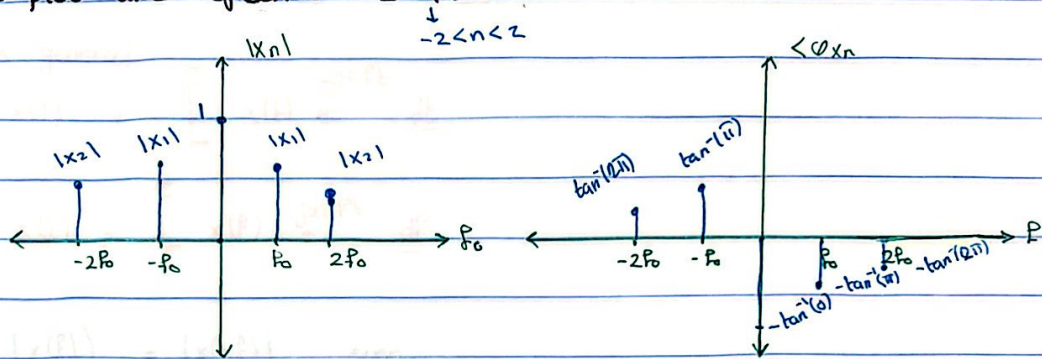 -2<n<2
|Xn|
<φxn
1
|X2|
|X1|
|X1|
|X2|
-2f₀
-f₀
f₀
2f₀
f₀
tan⁻¹(2π)
tan⁻¹(π)
-2f₀
-f₀
f₀
2f₀
f
-tan⁻¹(π)
-tan⁻¹(2π)
-tan⁻¹(0)